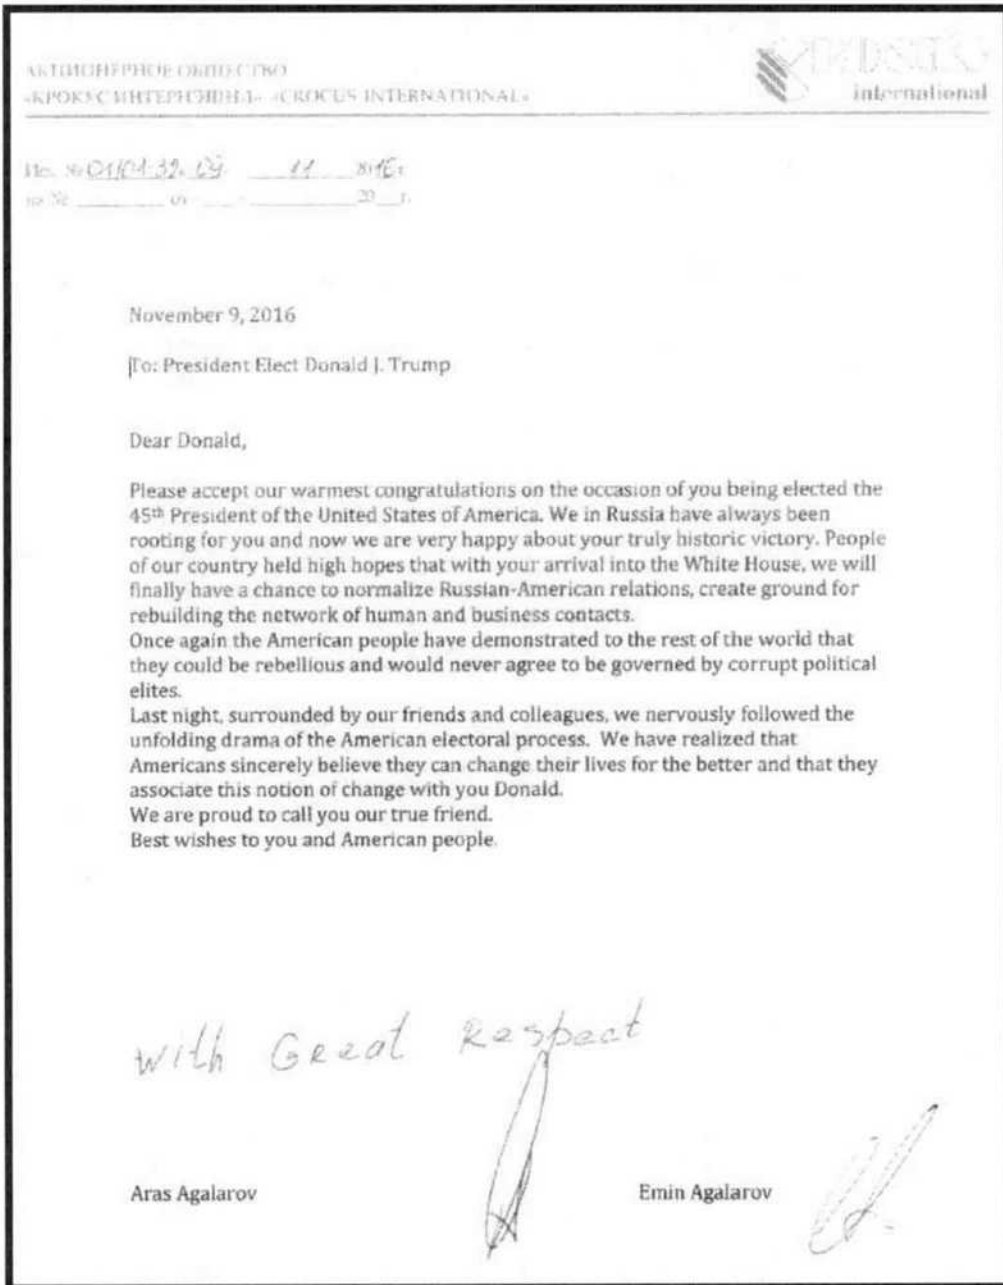 АКЦИОНЕРНОЕ ОБЩЕСТВО
«КРОКУС ИНТЕРНЭШНЛ» «CROCUS INTERNATIONAL»
international
Исх. № 01/01-32. 09. 11 2016 г.
на № от 20 г.
November 9, 2016
To: President Elect Donald J. Trump
Dear Donald,
Please accept our warmest congratulations on the occasion of you being elected the
45th President of the United States of America. We in Russia have always been
rooting for you and now we are very happy about your truly historic victory. People
of our country held high hopes that with your arrival into the White House, we will
finally have a chance to normalize Russian-American relations, create ground for
rebuilding the network of human and business contacts.
Once again the American people have demonstrated to the rest of the world that
they could be rebellious and would never agree to be governed by corrupt political
elites.
Last night, surrounded by our friends and colleagues, we nervously followed the
unfolding drama of the American electoral process. We have realized that
Americans sincerely believe they can change their lives for the better and that they
associate this notion of change with you Donald.
We are proud to call you our true friend.
Best wishes to you and American people.
with Great Respect
Aras Agalarov Emin Agalarov